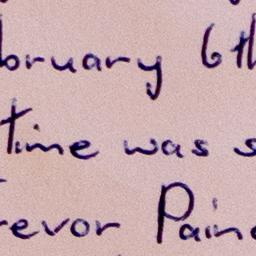 bruary 6th
time was s
revor Paine